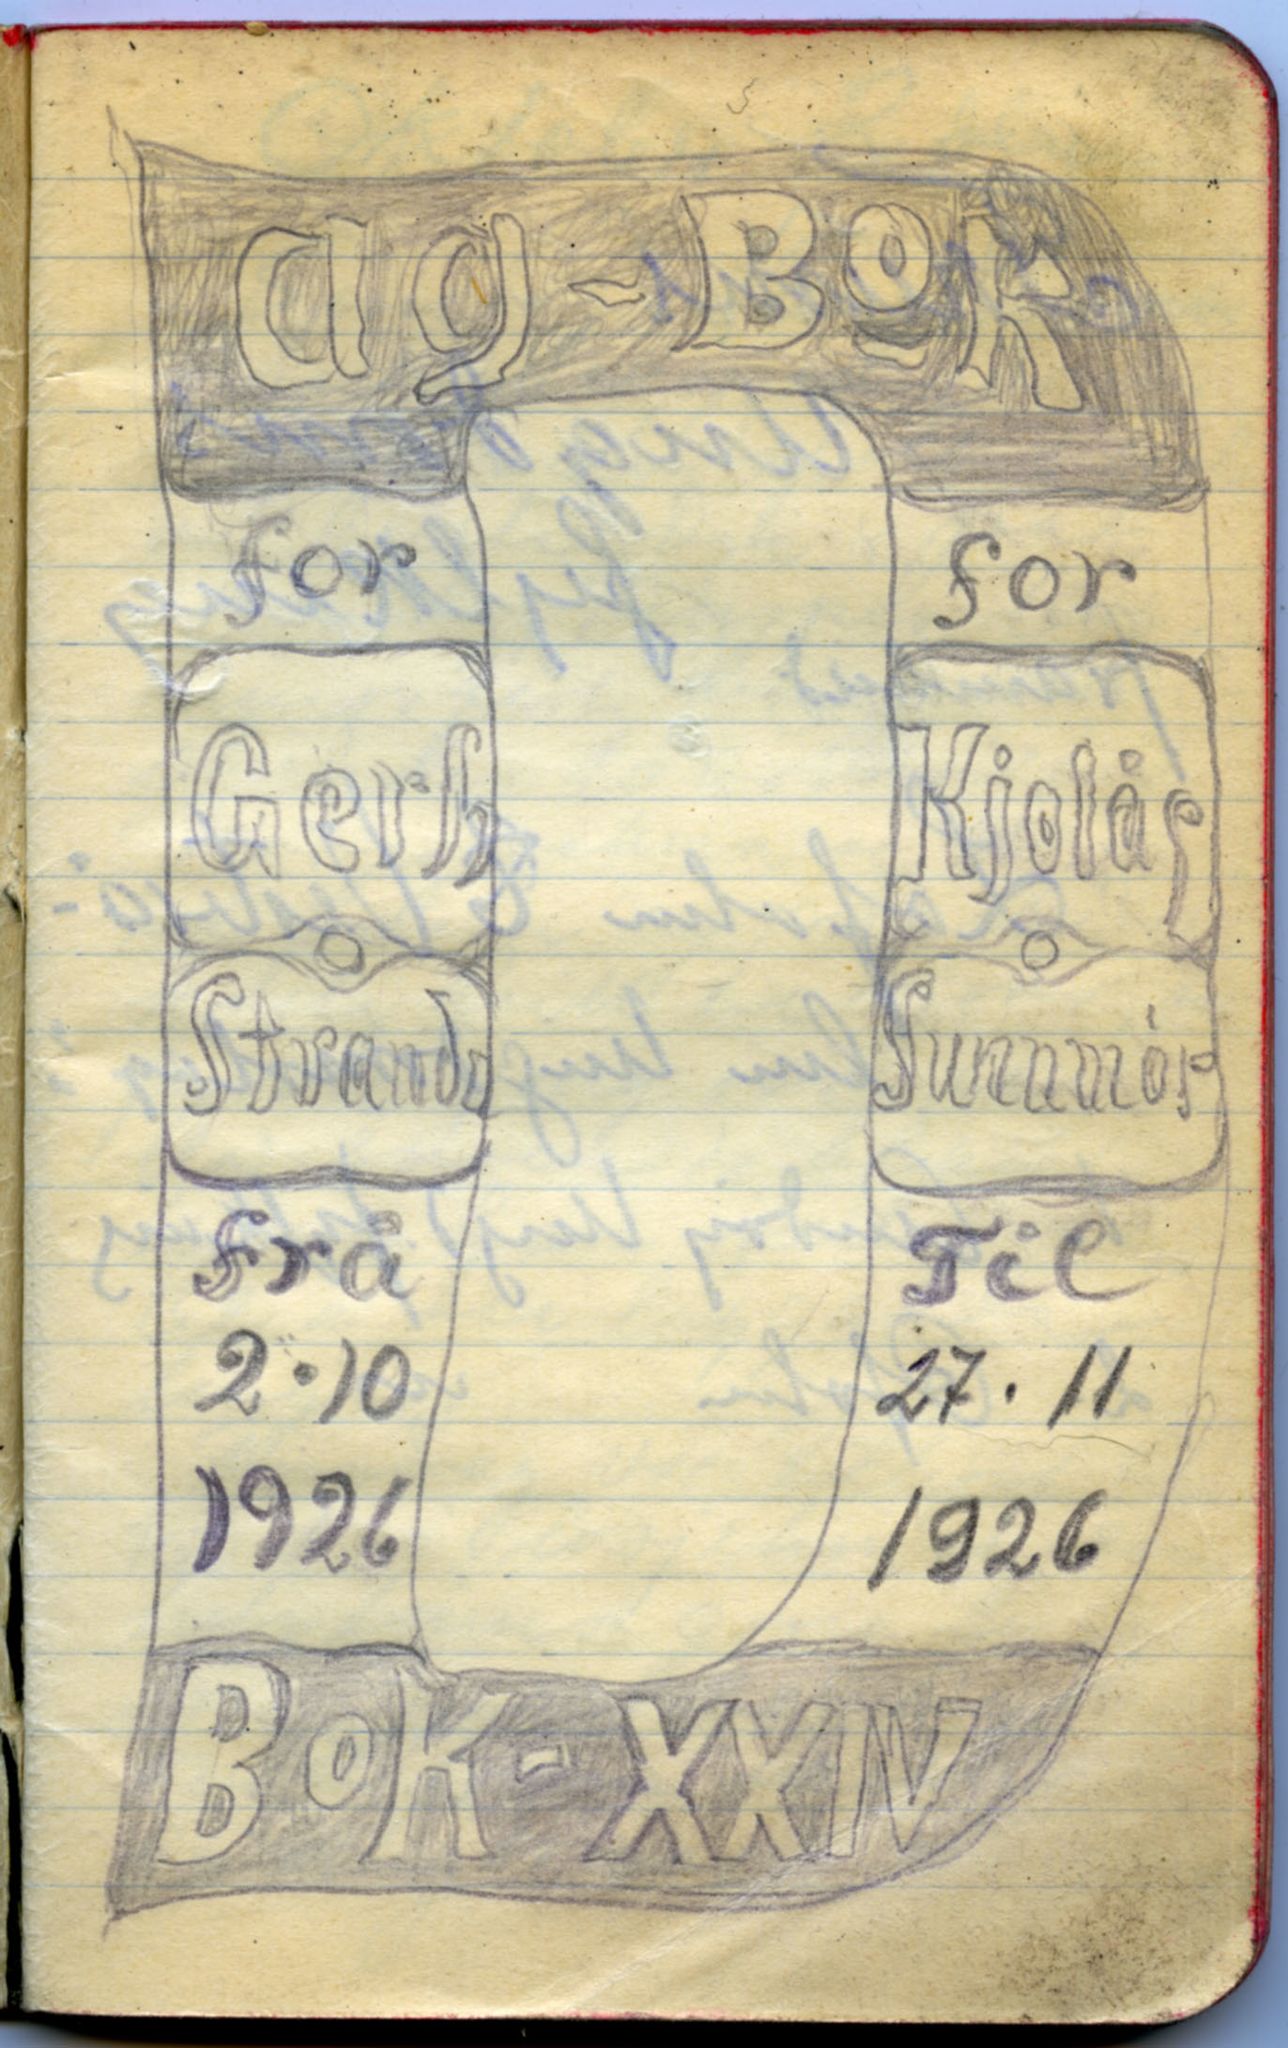 Dag-Bok
for
Gerh
Strand
Frå
2.10
1926
for
Kjolås
Sunnmör
Til
27.11
1926
Bok-XXIV